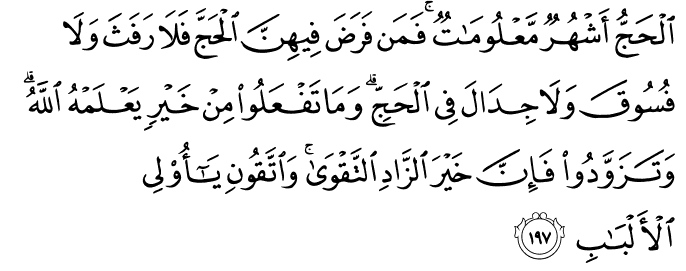 ٱلْحَجُّ أَشْهُرٌ مَّعْلُومَـٰتٌ ۚ فَمَن فَرَضَ فِيهِنَّ ٱلْحَجَّ فَلَا رَفَثَ وَلَا
فُسُوقَ وَلَا جِدَالَ فِى ٱلْحَجِّ ۗ وَمَا تَفْعَلُوا۟ مِنْ خَيْرٍ يَعْلَمْهُ ٱللَّهُ ۗ
وَتَزَوَّدُوا۟ فَإِنَّ خَيْرَ ٱلزَّادِ ٱلتَّقْوَىٰ ۚ وَٱتَّقُونِ يَـٰٓأُو۟لِى
ٱلْأَلْبَـٰبِ ١٩٧